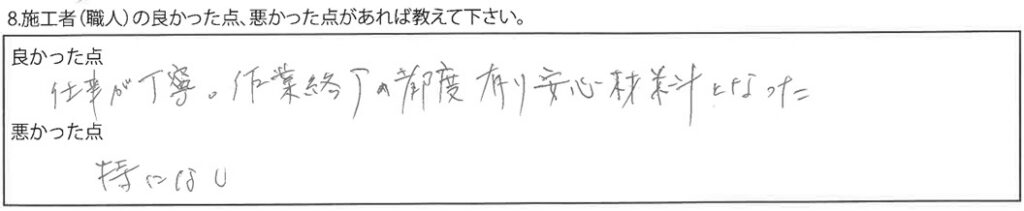 8.施工者（職人）の良かった点、悪かった点があれば教えて下さい。
良かった点
仕事が丁寧。作業終了の都度有り安心材料となった
悪かった点
特になし